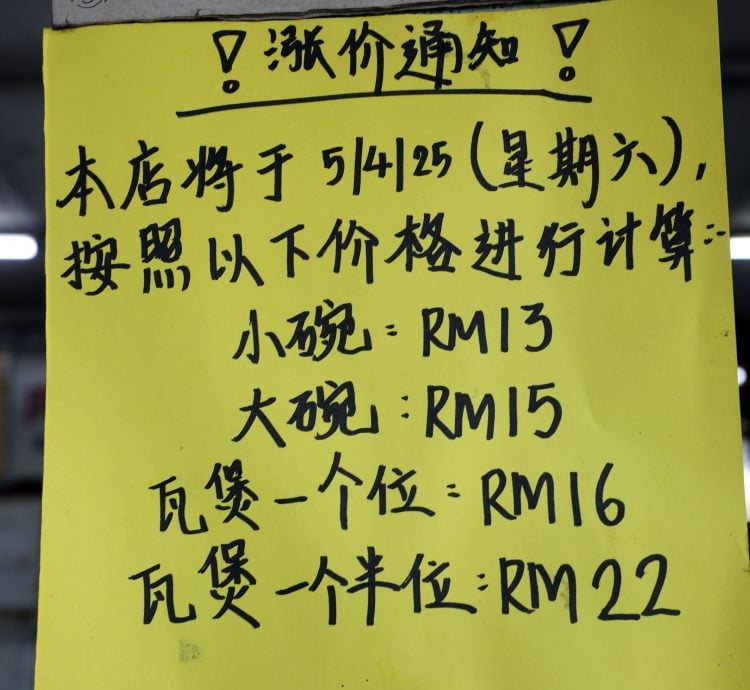 ！涨价通知！
本店将于 5/4/25 (星期六),
按照以下价格进行计算:-
小碗：RM13
大碗：RM15
瓦煲一个位：RM16
瓦煲一个半位：RM22